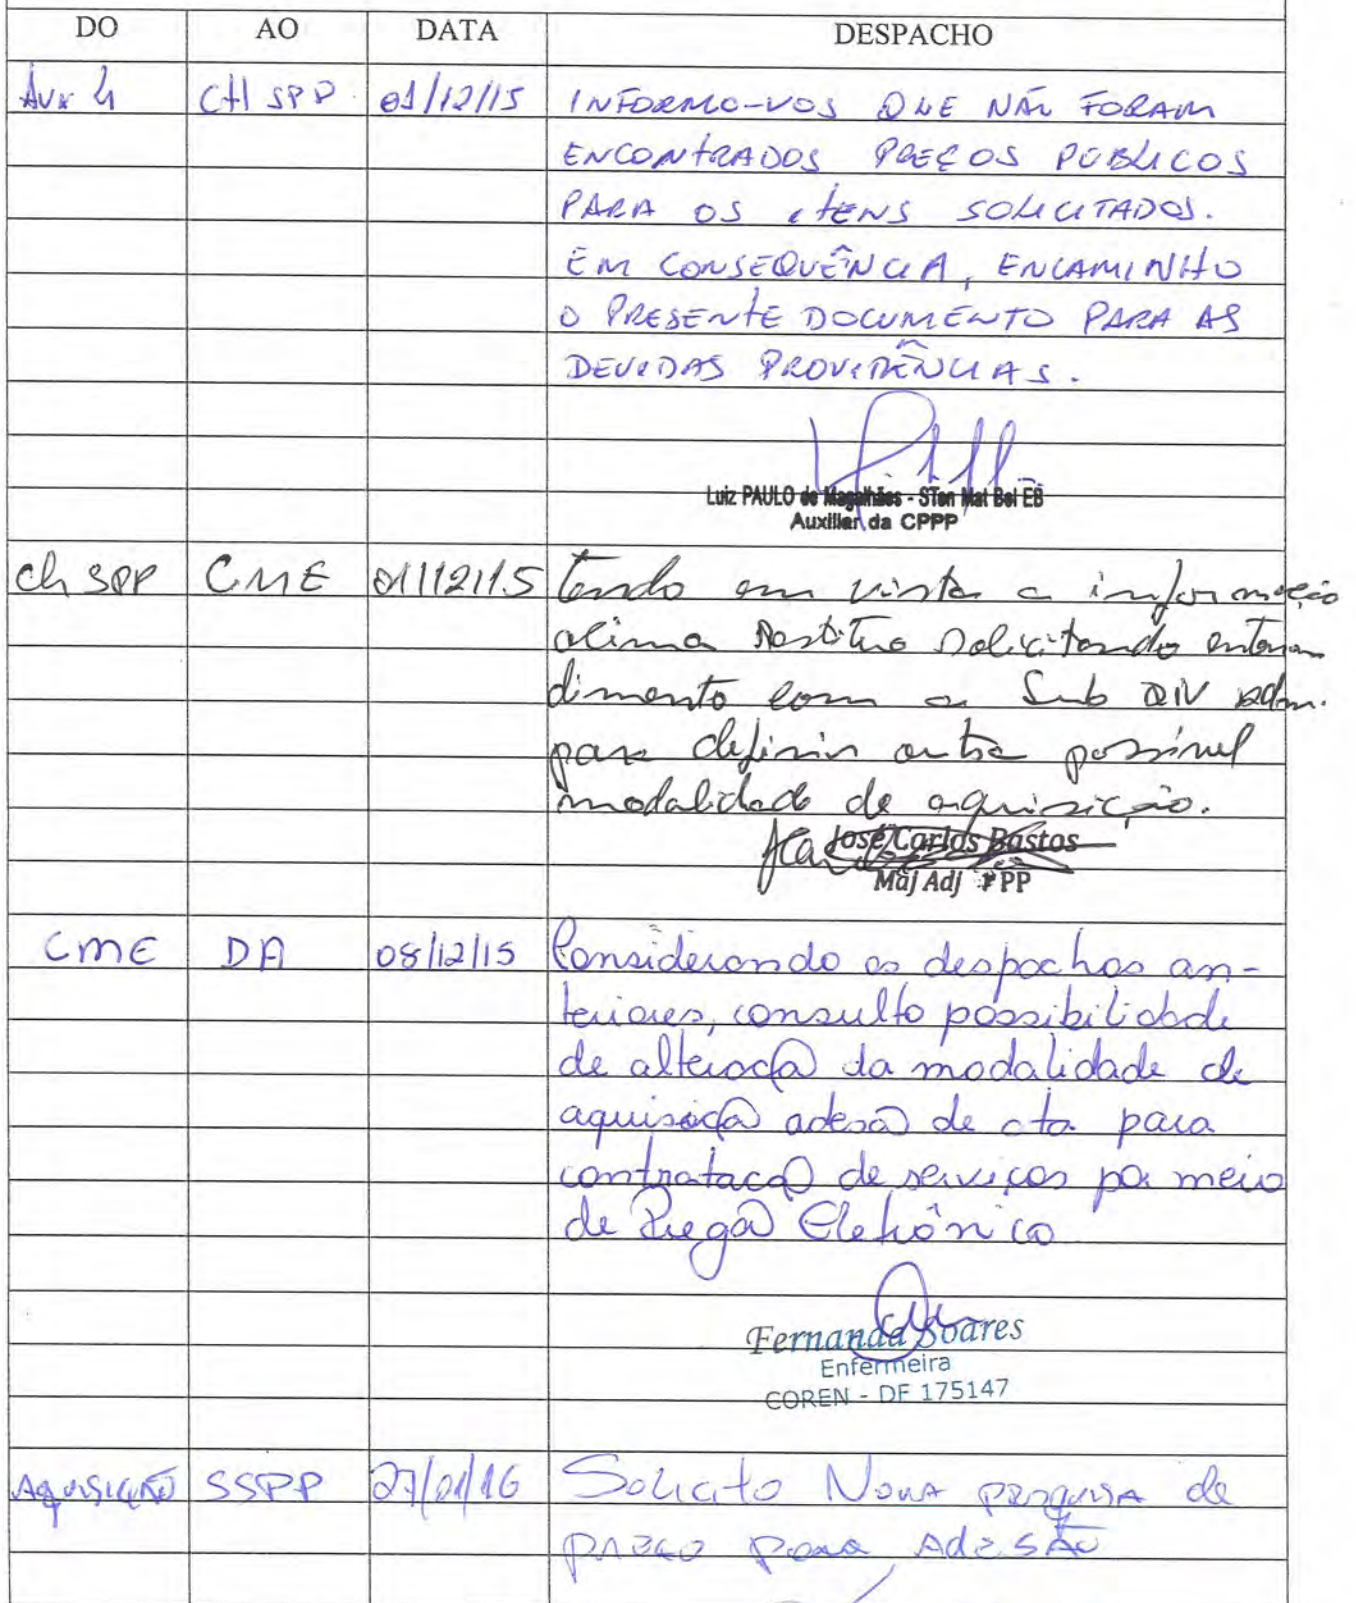 DO AO DATA DESPACHO
Aux 4 CH SPP 01/12/15 INFORMO-VOS QUE NÃO FORAM
ENCONTRADOS PREÇOS PÚBLICOS
PARA OS ITENS SOLICITADOS.
EM CONSEQUÊNCIA, ENCAMINHO
O PRESENTE DOCUMENTO PARA AS
DEVIDAS PROVIDÊNCIAS.
Luiz PAULO de Magalhães - STen Mat Bel EB
Auxiliar da CPPP
Ch SPP CME 01/12/15 Tendo em vista a informação
acima restituo solicitando enten
dimento com a Sub DIV Adm.
para definir outra possível
modalidade de aquisição.
José Carlos Bastos
Maj Adj PP
CME DA 08/12/15 Considerando os despachos an-
teriores, consulto possibilidade
de alteração da modalidade de
aquisição adesão de ata para
contratação de serviços por meio
de Pregão Eletrônico
Fernanda Soares
Enfermeira
COREN - DF 175147
AQUISIÇÃO SSPP 27/01/16 Solicito Nova pesquisa de
preço para Adesão